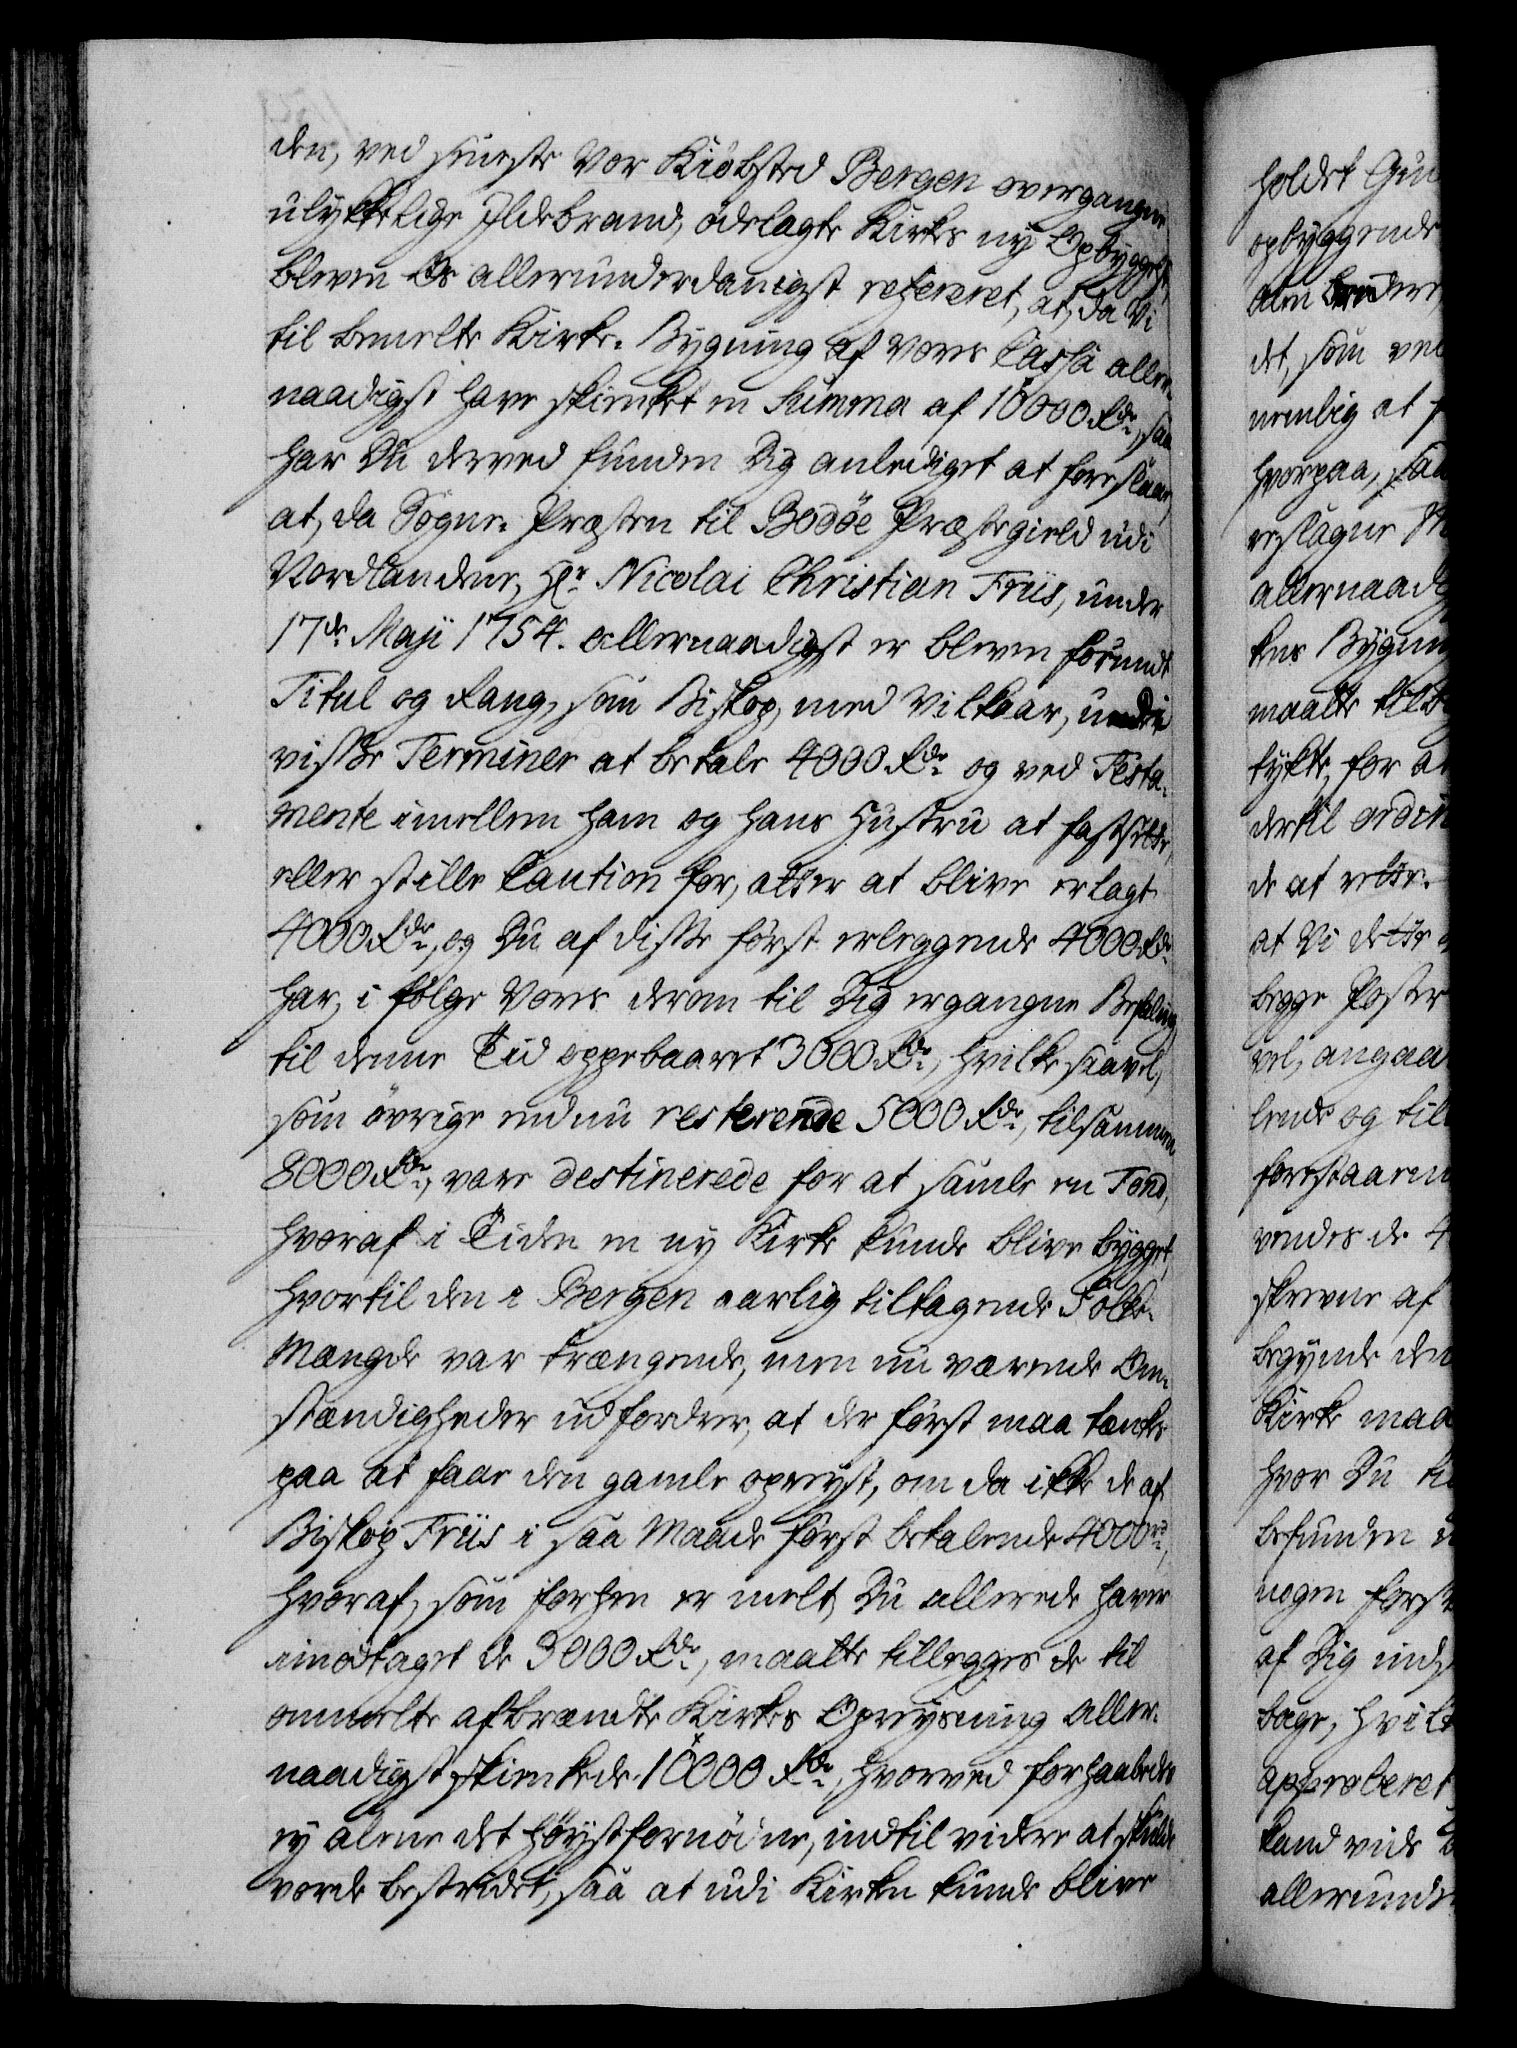 den, ved sineste Vor Kiöbsted Bergen overgangne
ulykkelige Ildebrand, ödelagte Kirkes ny Opbyggelse,
bleven Os allerunderdanigst refereret, at, da Vi
til bemelte Kirke-Bygning af Vores Cassa aller-
naadigst have skienket en Summa af 10000 Rdr, saa
har Du derved funden Dig anlediget at foreslaae,
at, da Sogne-Præsten til Bodöe Præstegield udi
Nordlandene, Hr Nicolai Christian Friis, under
17de Maji 1754. allernaadigst er bleven forundt
Titul og Rang, som Biskop, med Vilkaar, udi
visse Terminer at betale 4000 Rdr og ved Testa-
mente imellem ham og hans Hustru at fastsette,
eller stille Caution for, atter at blive erlagt
4000 Rdr, og Du af disse först erleggende 4000 Rdr
har, i fölge Vores derom til Dig ergangne Befaling,
til denne Tid oppebaaret 3000 Rdr, hvilke saavel,
som övrige endnu resterende 5000 Rdr, tilsammen
8000 Rdr, vare destinerede for at samle en Fond,
hvoraf i Tiden en ny Kirke kunde blive bygget,
hvortil den i Bergen aarlig tiltagende Folke-
Mængde var trængende, men nu værende Om-
stændigheder udfordrer, at der först maa tænkes
paa at faae den gamle opreyst, om da ikke de af
Biskop Friis i saa Maade först betalende 4000 rd,
hvoraf, som forhen er melt, Du allerede haver
imodtaget de 3000 Rdr, maatte tillegges de til
ommelte afbrændte Kirkes Opreysning aller-
naadigst skienkede 10000 Rdr, hvorved forhaabedes
ey alene det höystfornödne, indtil videre at skulde
vorde bestridet, saa at udi Kirken kunde blive
holdet Gud
opbyggende
det, som ved
nemlig at
hvorpaa, saa
reslagne
allernaadig
kes Bygning
maatte till
tykte, for at
dertil ordin
de at rette.
at Vi dette
begge Poster
vel, angaa
lende og til
forestaaen
vendes de 4
skrevne af
begynde den
Kirke maa
hvor Du til
befunden
nogen först
af Dig ind
tage, hvilk
approberet
kand vide
allerunder